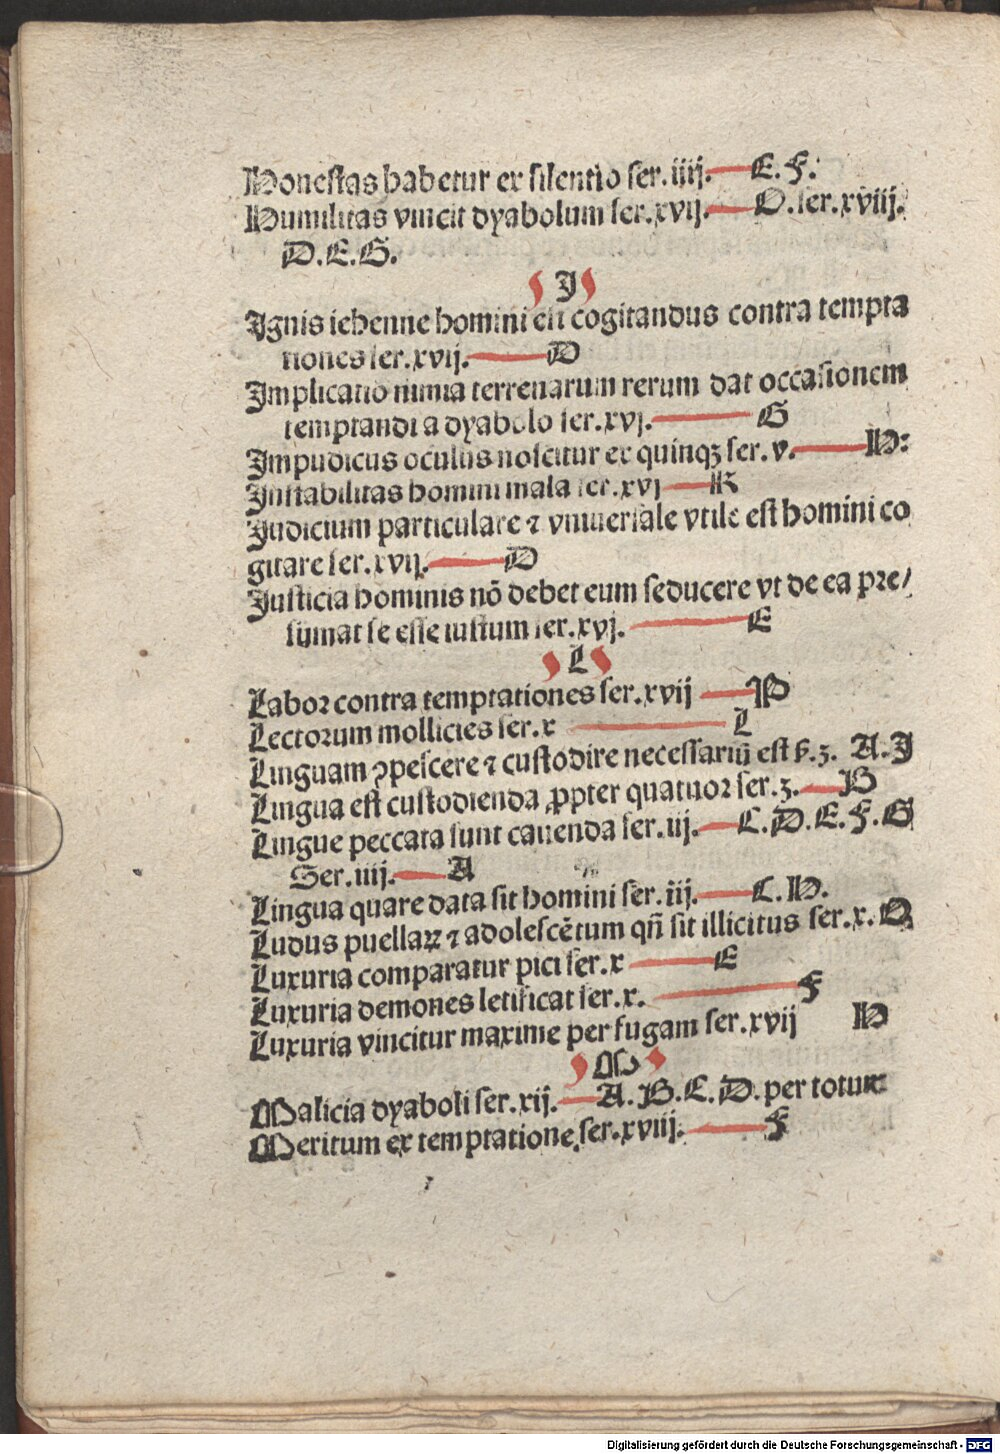 Honestas habetur ex silentio ser. iiij. E. F.
Humilitas vincit dyabolum ser. xvij. O. ser. xviij.
D. E. G.
I
Ignis iehenne homini est cogitandus contra tempta
tiones ser. xvij. D
Implicatio nimia terrenarum rerum dat occasionem
temptandi a dyabolo ser. xvj. G
Impudicus oculus noscitur ex quinqꝫ ser. v. H:
Instabilitas homini mala ser. xvj K
Iudicium particulare ⁊ vniuersale vtile est homini co
gitare ser. xvij. D
Iusticia hominis nō debet eum seducere vt de ea pre/
sumat se esse iustum ser. xvj. E
L
Labor contra temptationes ser. xvij P
Lectorum mollicies ser. x L
Linguam ꝯpescere ⁊ custodire necessariū est ß. 3. A. I
Lingua est custodienda ꝓpter quatuor ser. 3. B
Lingue peccata sunt cauenda ser. iij. C. D. E. F. G
Ser. iiij. A
Lingua quare data sit homini ser. iij. C. H.
Ludus puellaꝝ ⁊ adolescētum qñ sit illicitus ser. x. O
Luxuria comparatur pici ser. x E
Luxuria demones letificat ser. x. F
Luxuria vincitur maxime per fugam ser. xvij H
M
Malicia dyaboli ser. xij. A. B. C. D. per totum
Meritum ex temptatione ser. xviij. F
Digitalisierung gefördert durch die Deutsche Forschungsgemeinschaft - DFG